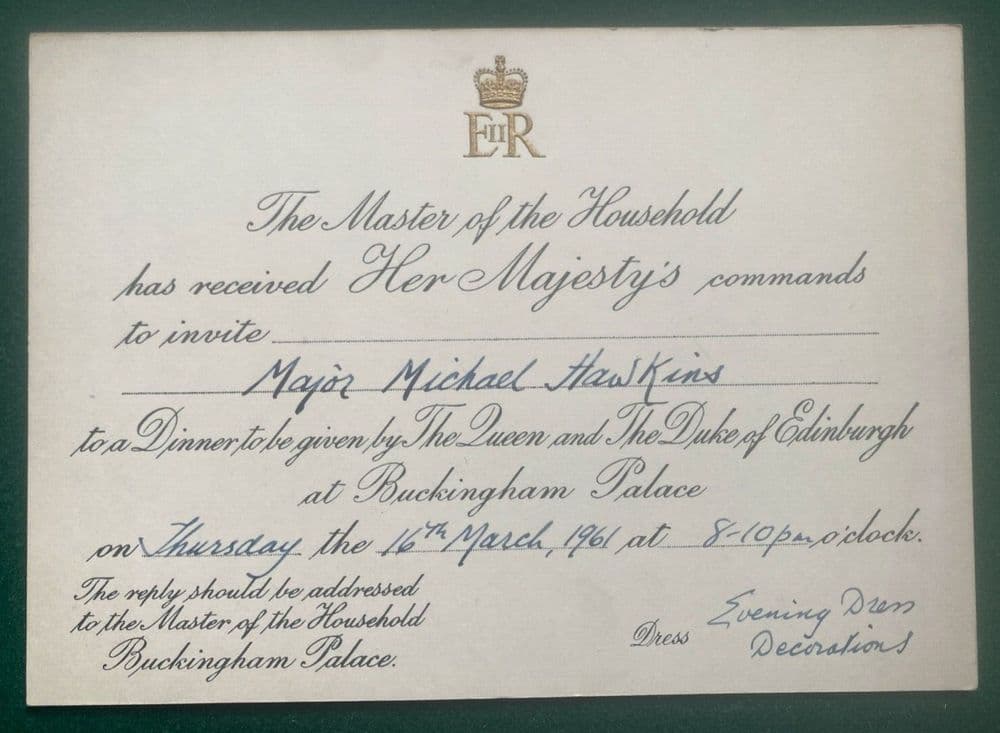 EIIR
The Master of the Household
has received Her Majesty's commands
to invite
Major Michael Hawkins
to a Dinner to be given by The Queen and The Duke of Edinburgh
at Buckingham Palace
on Thursday the 16th March, 1961 at 8-10pm o'clock.
The reply should be addressed
to the Master of the Household
Buckingham Palace.
Dress Evening Dress
Decorations